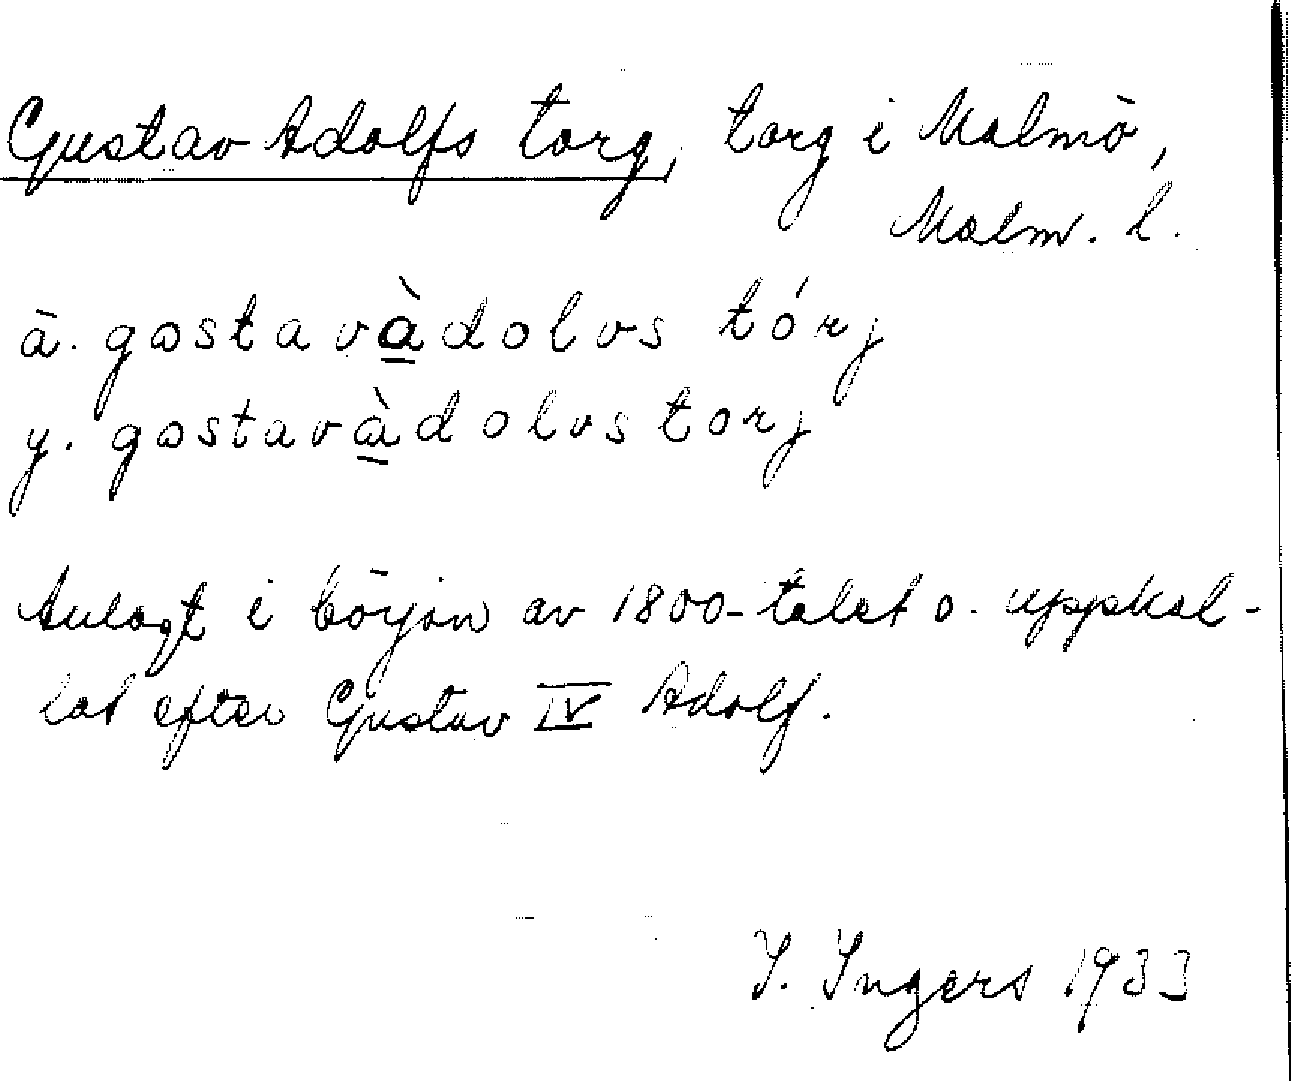 Gustav Adolfs torg, torg i Malmö,
Malm. l.
ä. gɷstavàdolvs tórj
y. gɷstavàdolvstorj
Anlagt i början av 1800-talet o. uppkal-
lat efter Gustav IV Adolf.
I. Ingers 1933